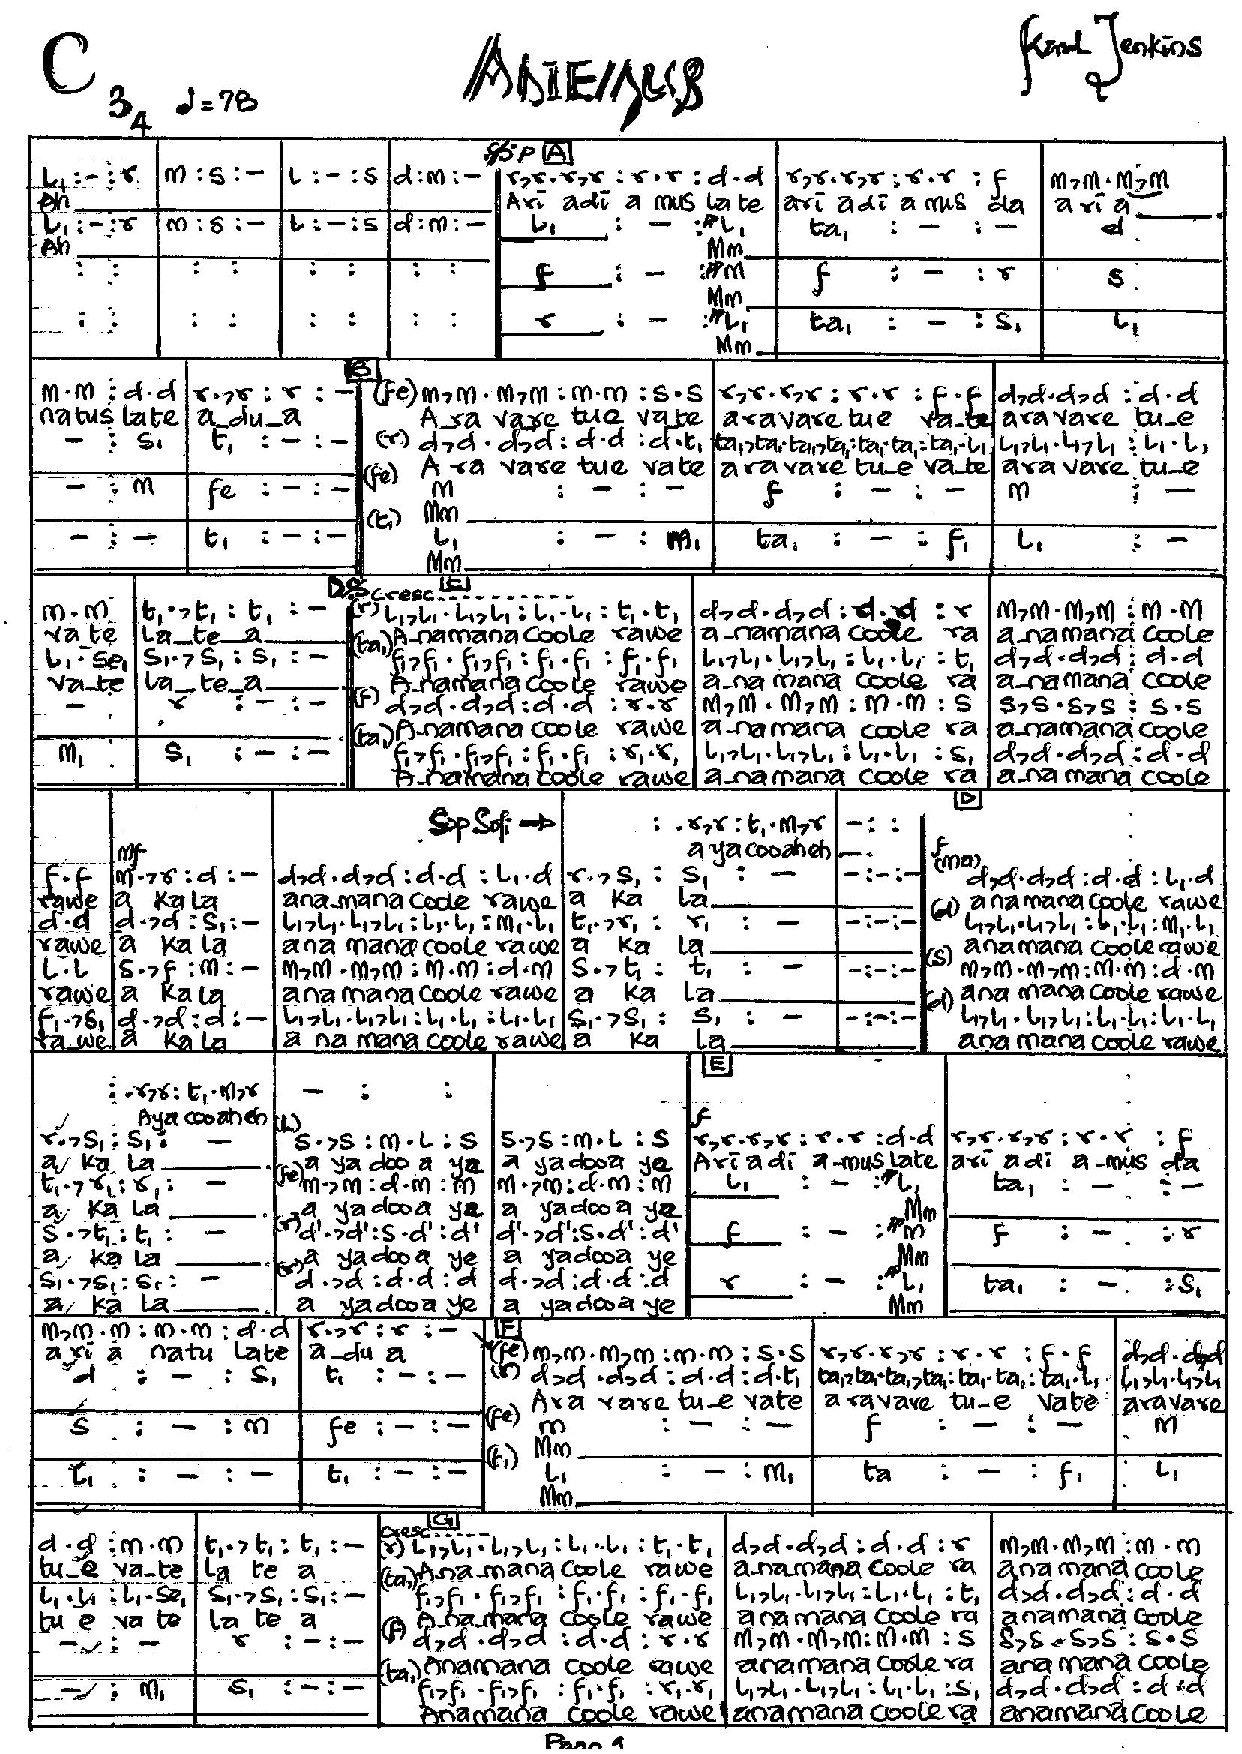 C ADIEMUS Karl Jenkins
3 4 ♩=78
S:P A
L₁:-:r m:s:- L:-:s d:m:- r,r.r,r:r.r:d.d r,r.r,r:r.r:f m,m.m,m
Ah Ari adi a mus la te ari adi a mus da ari a
L₁:-:r m:s:- L:-:s d:m:- L₁:-:L₁ ta₁:-:- d
Ah Mm
: : : : : : : : f:-:m f:-:r s
Mm
: : : : : : : : r:-:L₁ ta₁:-:s₁ L₁
Mm
B
m.m:d.d r.,r:r:- (fe) m,m.m,m:m.m:s.s r,r.r,r:r.r:f.f d,d.d,d:d.d
natus late a_du_a A ra vare tue vate aravare tue va_te aravare tu_e
-:s₁ t₁:-:- (r) d,d.d,d:d.d:d.t₁ ta₁,ta₁.ta₁,ta₁:ta₁.ta₁:ta₁.L₁ L₁,L₁.L₁,L₁:L₁.L₁
A ra vare tue vate aravare tu_e va_te aravare tu_e
-:m fe:-:- (fe) m:-:- f:-:- m:-
Mm
-:- t₁:-:- (t₁) L₁:-:m₁ ta₁:-:f₁ L₁:-
Mm
DS Cresc.......... C
m.m t₁.,t₁:t₁:- (r) L₁,L₁.L₁,L₁:L₁.L₁:t₁.t₁ d,d.d,d:d.d:r m,m.m,m:m.m
va te La_te_a A_namana Coole rawe a_namana Coole ra a_namana Coole
L₁.se₁ s₁.,s₁:s₁:- (ta₁) f₁,f₁.f₁,f₁:f₁.f₁:f₁.f₁ L₁,L₁.L₁,L₁:L₁.L₁:t₁ d,d.d,d:d.d
va_te la_te_a A_namana Coole rawe a_na mana Coole ra a_namana Coole
- r:-:- (f) d,d.d,d:d.d:r.r m,m.m,m:m.m:s s,s.s,s:s.s
A_namana coole rawe a_namana coole ra a_namana coole
m₁ s₁:-:- (ta₁) f₁,f₁.f₁,f₁:f₁.f₁:r₁.r₁ L₁,L₁.L₁,L₁:L₁.L₁:s₁ d,d.d,d:d.d
A_namana coole rawe a_namana coole ra a_na mana Coole
D
Sop Soli → :.r,r:t₁.m,r -: :
mf aya cooaheh f
f.f m.,r:d:- d,d.d,d:d.d:L₁.d r.,s₁:s₁:- -:-:- (ma) d,d.d,d:d.d:L₁.d
rawe a Ka La ana_mana Coole rawe a Ka La a namana coole rawe
d.d d.,d:s₁:- L₁,L₁.L₁,L₁:L₁.L₁:m₁.L₁ t₁.,r₁:r₁:- -:-:- (d) L₁,L₁.L₁,L₁:L₁.L₁:m₁.L₁
rawe a Ka La ana mana coole rawe a Ka La anamana coole rawe
L.L s.,f:m:- m,m.m,m:m.m:d.m s.,t₁:t₁:- -:-:- (s) m,m.m,m:m.m:d.m
rawe a Ka la ana mana Coole rawe a Ka La ana mana Coole rawe
f₁.,s₁ d.,d:d:- L₁,L₁.L₁,L₁:L₁.L₁:L₁.L₁ s₁.,s₁:s₁:- -:-:- (d) L₁,L₁.L₁,L₁:L₁.L₁:L₁.L₁
ra_we a Ka La a na mana coole rawe a Ka La ana mana coole rawe
E
:.r,r:t₁.m,r - : :
Aya cooaheh f
r.,s₁:s₁:- (L) s.,s:m.L:s s.,s:m.L:s r,r.r,r:r.r:d.d r,r.r,r:r.r:f
a Ka La a ya doo a ye a ya doo a ye Ari adi a_mus late ari adi a_mus da
t₁.,r₁:r₁:- (fe) m.,m:d.m:m m.,m:d.m:m L₁:-:L₁ ta₁:-:-
a Ka La a ya doo a ye a ya doo a ye Mm
s.,t₁:t₁:- (r) d'.,d':s.d':d' d'.,d':s.d':d' f:-:m f:-:r
a Ka La a ya doo a ye a ya doo a ye Mm
s₁.,s₁:s₁:- (r) d.,d:d.d:d d.,d:d.d:d r:-:L₁ ta₁:-:s₁
a Ka La a ya doo a ye a ya doo a ye Mm
F
m,m.m:m.m:d.d r.,r:r:- (fe) m,m.m,m:m.m:s.s r,r.r,r:r.r:f.f d,d.d,d
a ri a natu late a_du a
d:-:s₁ t₁:-:- (r) d,d.d,d:d.d:d.t₁ ta₁,ta₁.ta₁,ta₁:ta₁.ta₁:ta₁.L₁ L₁,L₁.L₁,L₁
Ara vare tu_e vate aravare tu_e vate aravare
s:-:m fe:-:- (fe) m:-:- f:-:- m
Mm
L₁:-:- t₁:-:- (t₁) L₁:-:m₁ ta:-:f₁ L₁
Mm
Cresc...... G
d.d:m.m t₁.,t₁:t₁:- (r) L₁,L₁.L₁,L₁:L₁.L₁:t₁.t₁ d,d.d,d:d.d:r m,m.m,m:m.m
tu_e va_te La te a Ana mana Coole rawe a namana Coole ra ana mana Coole
L₁.L₁:L₁.se₁ s₁.,s₁:s₁:- (ta₁) f₁,f₁.f₁,f₁:f₁.f₁:f₁.f₁ L₁,L₁.L₁,L₁:L₁.L₁:t₁ d,d.d,d:d.d
tu e va te la te a A_na_mana Coole rawe ana mana Coole ra anamana Coole
-:- r:-:- (f) d,d.d,d:d.d:r.r m,m.m,m:m.m:s s,s.s,s:s.s
Anamana coole rawe anamana Coole ra ana mana Coole
-:m₁ s₁:-:- (ta₁) f₁,f₁.f₁,f₁:f₁.f₁:r₁.r₁ L₁,L₁.L₁,L₁:L₁.L₁:s₁ d,d.d,d:d.d
Anamana Coole rawe anamana Coole ra anamana Coole
Page 1